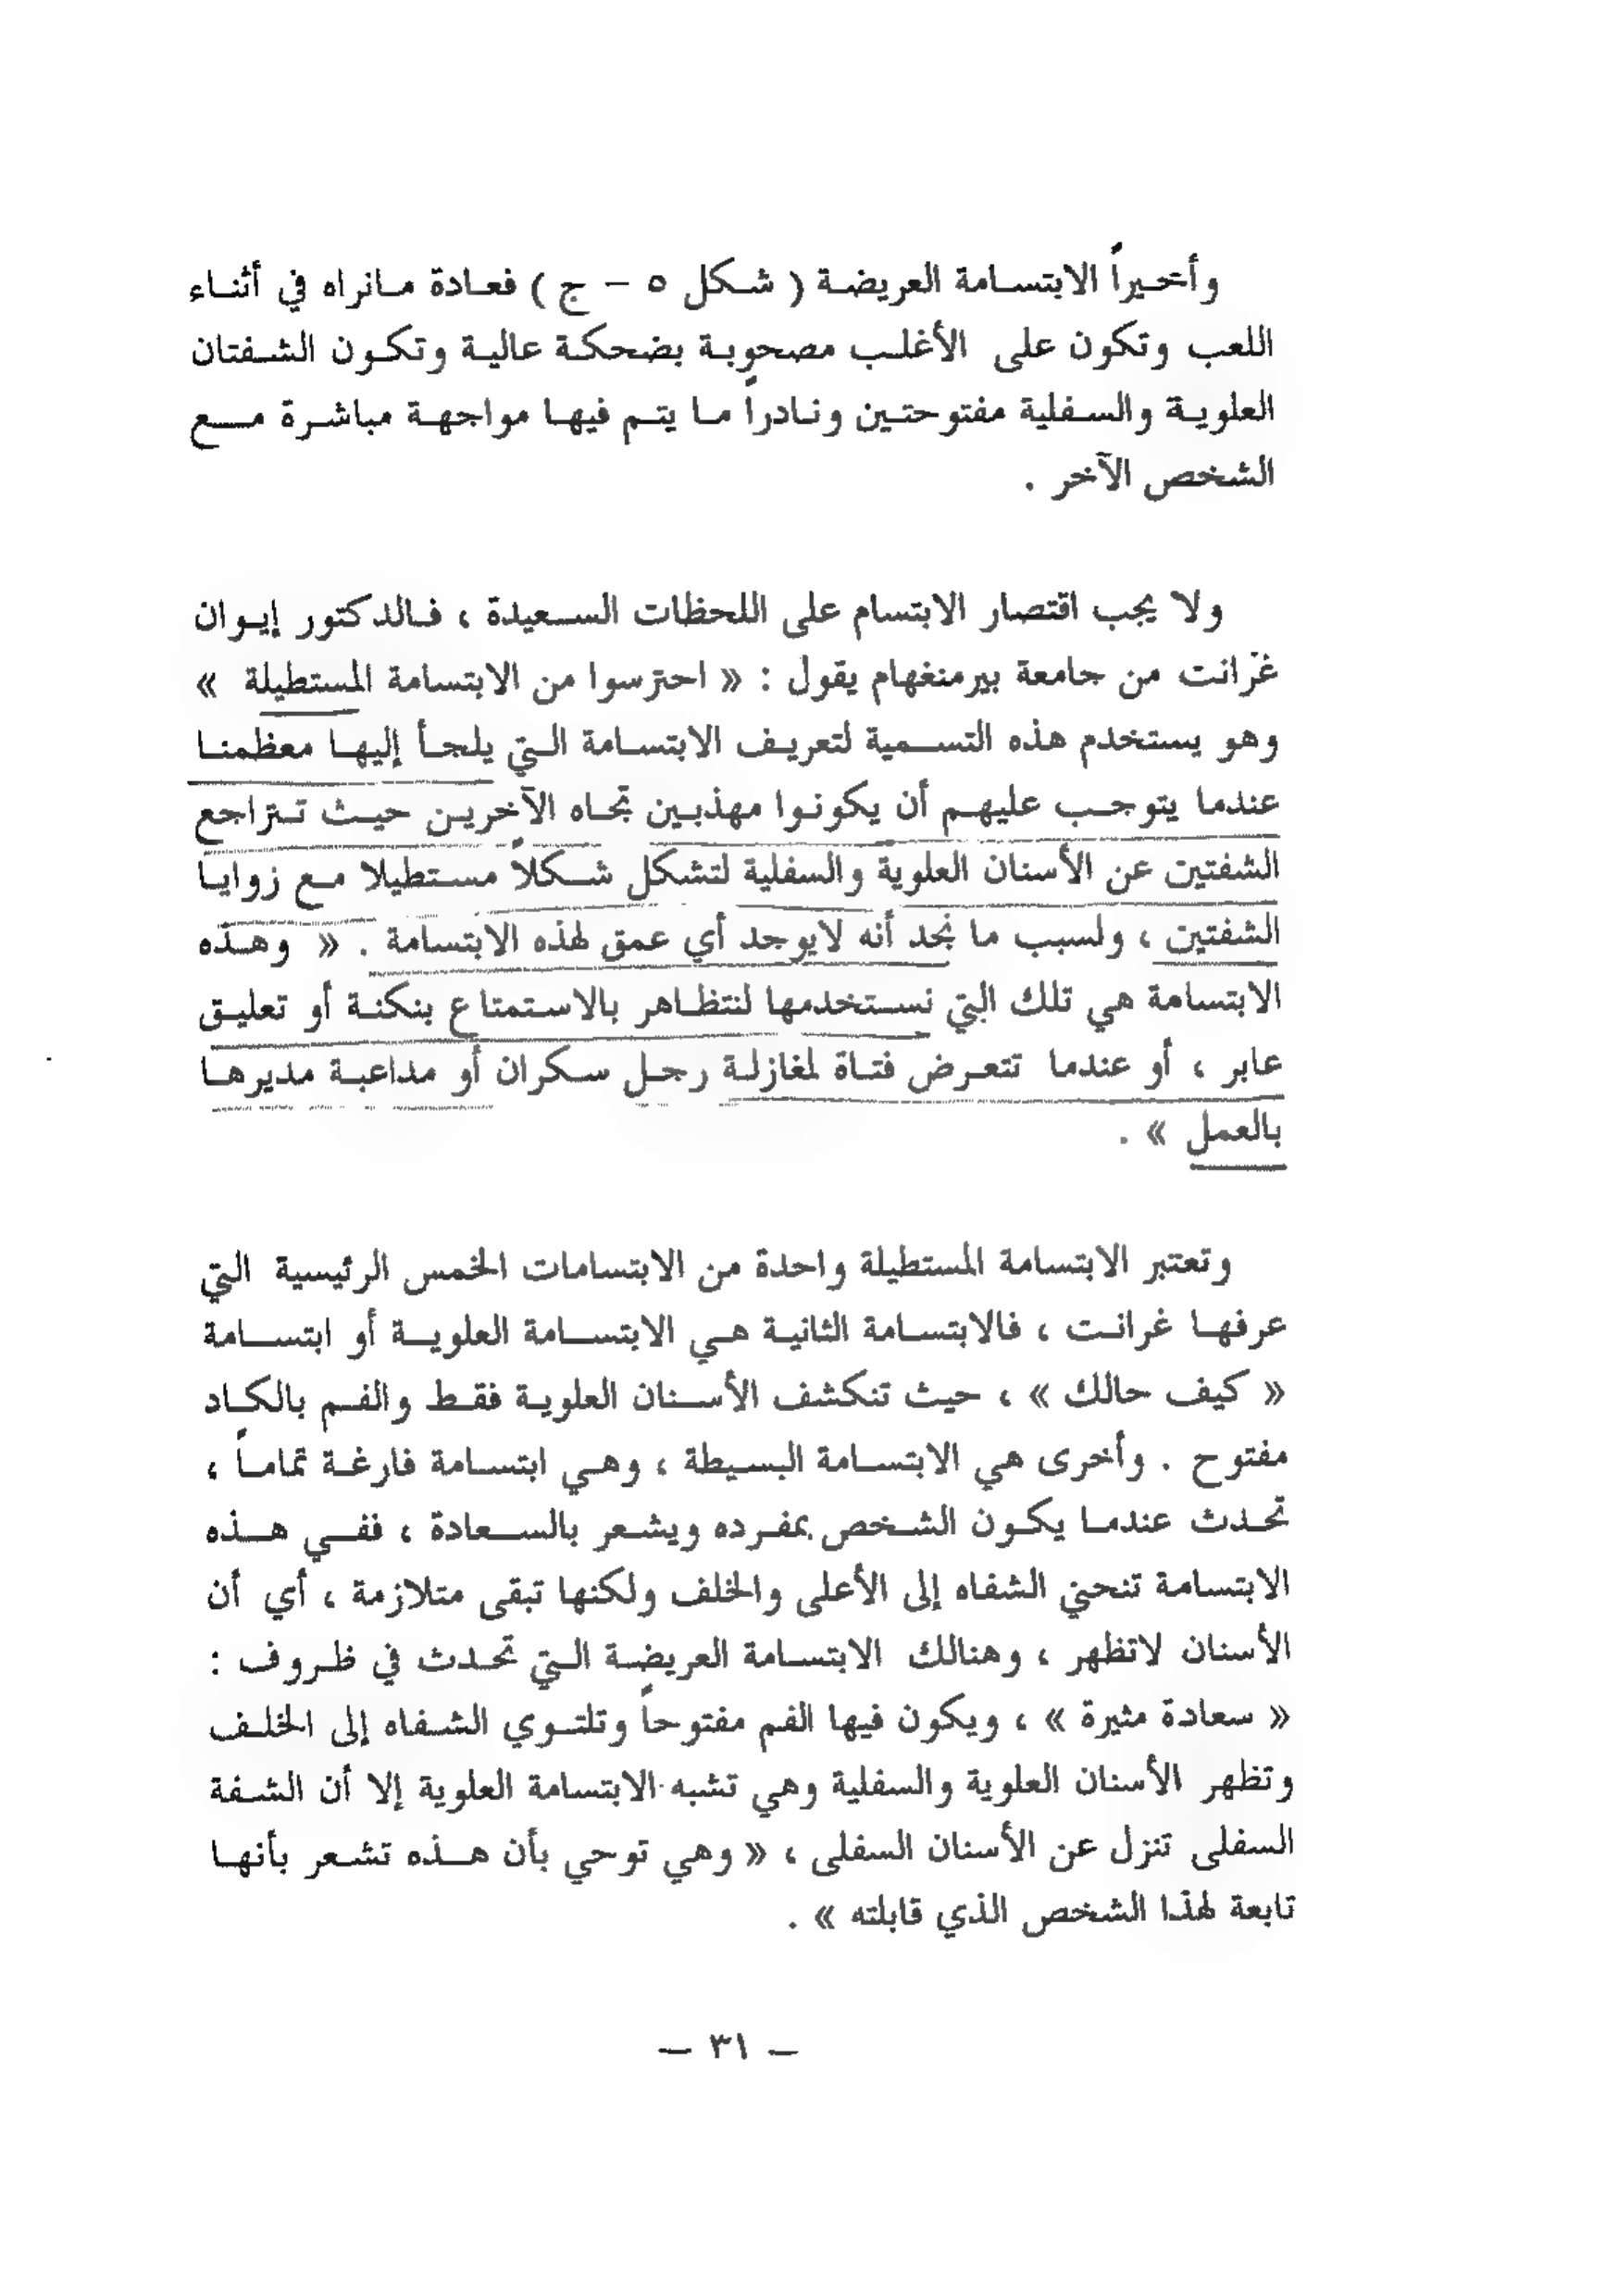 وأخيراً الابتسامة العريضة ( شكل ٥ – ج ) فعادة مانراه في أثناء
اللعب وتكون على الأغلب مصحوبة بضحكة عالية وتكون الشفتان
العلوية والسفلية مفتوحتين ونادراً ما يتم فيها مواجهة مباشرة مع
الشخص الآخر .
ولا يجب اقتصار الابتسام على اللحظات السعيدة ، فالدكتور إيوان
غرانت من جامعة بيرمنغهام يقول : « احترسوا من الابتسامة المستطيلة »
وهو يستخدم هذه التسمية لتعريف الابتسامة التي يلجأ إليها معظمنا
عندما يتوجب عليهم أن يكونوا مهذبين تجاه الآخرين حيث تتراجع
الشفتين عن الأسنان العلوية والسفلية لتشكل شكلاً مستطيلا مع زوايا
الشفتين ، ولسبب ما نجد أنه لايوجد أي عمق لهذه الابتسامة . « وهذه
الابتسامة هي تلك التي نستخدمها لنتظاهر بالاستمتاع بنكتة أو تعليق
عابر ، أو عندما تتعرض فتاة لمغازلة رجل سكران أو مداعبة مديرها
بالعمل » .
وتعتبر الابتسامة المستطيلة واحدة من الابتسامات الخمس الرئيسية التي
عرفها غرانت ، فالابتسامة الثانية هي الابتسامة العلوية أو ابتسامة
« كيف حالك » ، حيث تنكشف الأسنان العلوية فقط والفم بالكاد
مفتوح . وأخرى هي الابتسامة البسيطة ، وهي ابتسامة فارغة تماماً ،
تحدث عندما يكون الشخص بمفرده ويشعر بالسعادة ، ففي هذه
الابتسامة تنحني الشفاه إلى الأعلى والخلف ولكنها تبقى متلازمة ، أي أن
الأسنان لاتظهر ، وهنالك الابتسامة العريضة التي تحدث في ظروف :
« سعادة مثيرة » ، ويكون فيها الفم مفتوحاً وتلتوي الشفاه إلى الخلف
وتظهر الأسنان العلوية والسفلية وهي تشبه الابتسامة العلوية إلا أن الشفة
السفلى تنزل عن الأسنان السفلى ، « وهي توحي بأن هذه تشعر بأنها
تابعة لهذا الشخص الذي قابلته » .
– ٣١ –